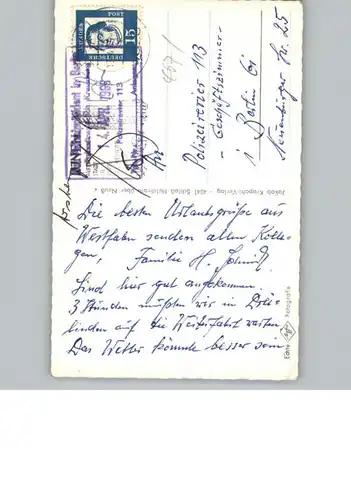 15
DEUTSCHE
BUNDESPOST
113
4267/1
An
Polizeirevier 113
- Geschäftszimmer -
1 Berlin 61
Neuenburger Str. 25
Jakob Krapohl-Verlag - 4041 Schloß Hülchrath über Neuß
Die besten Urlaubsgrüße aus
Westfalen senden allen Kolle-
gen, Familie H. Schmidt
Sind hier gut angekommen.
3 Stunden mußten wir in Drei-
linden auf die Weiterfahrt warten.
Das Wetter könnte besser sein
Echte Agfa Fotografie